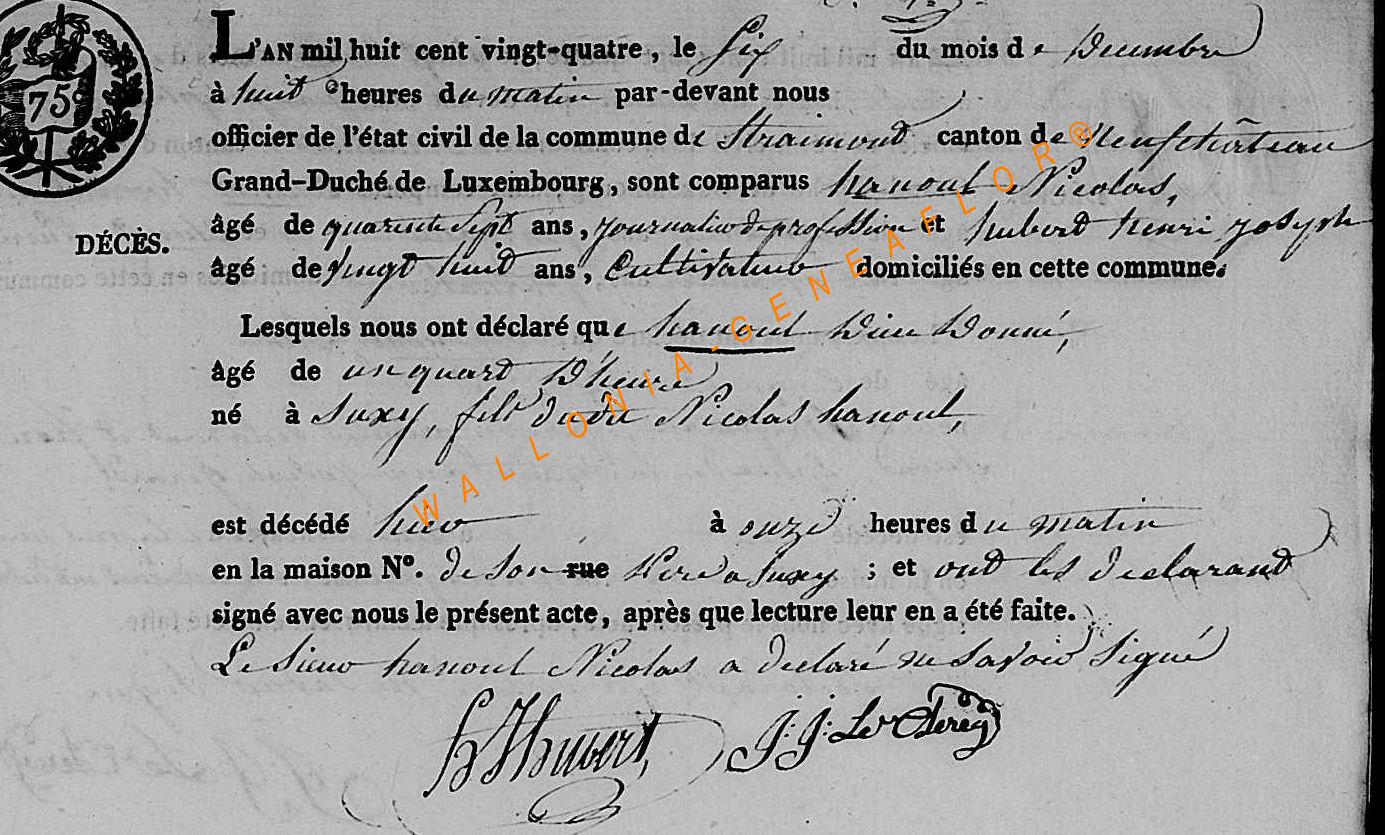 75
L'AN mil huit cent vingt-quatre, le Six du mois de Decembre
à huit heures du matin par-devant nous
officier de l'état civil de la commune de Straimont canton de Neufchâteau
Grand-Duché de Luxembourg, sont comparus hanoul Nicolas,
DÉCÈS.
âgé de quarente Sept ans, journalier de profession et hubert henri joseph
âgé de vingt huit ans, Cultivateur domiciliés en cette commune.
Lesquels nous ont déclaré que hanoul Dieu Donné,
âgé de un quart D'heure
né à Suxy, fils du dit Nicolas hanoul,
est décédé hier à onze heures du matin
en la maison N°. de son rue Perea Suxy ; et ont les declarant
signé avec nous le présent acte, après que lecture leur en a été faite.
Le Sieur hanoul Nicolas a declaré ne Savoir Signé
h J hubert, J: J: Le Clerey
WALLONIA-GENEAFLOR®